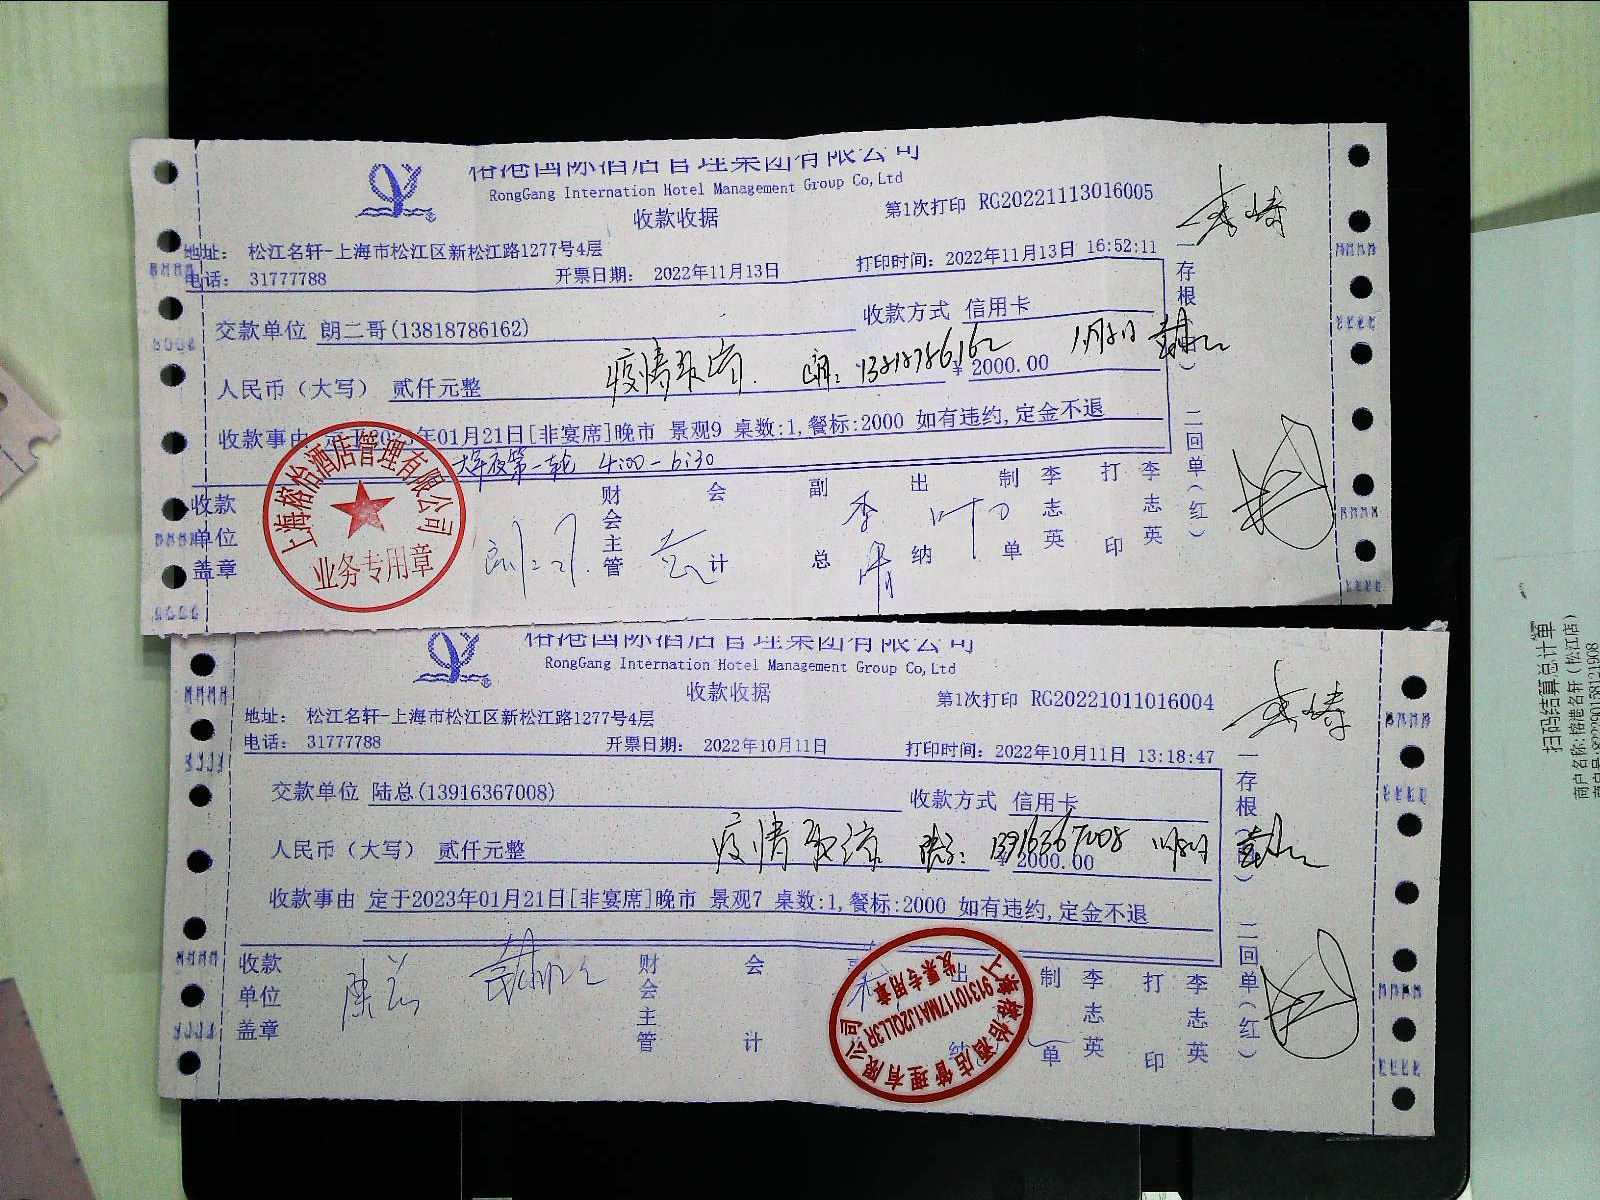 榕港国际酒店管理集团有限公司
RongGang Internation Hotel Management Group Co,Ltd
收款收据
第1次打印 RG20221113016005
地址： 松江名轩-上海市松江区新松江路1277号4层
电话： 31777788
开票日期： 2022年11月13日
打印时间：2022年11月13日 16:52:11
交款单位 朗二哥(13818786162)
收款方式 信用卡
疫情取消. 朗：13818786162
人民币（大写） 贰仟元整
￥2000.00
收款事由 定于2023年01月21日[非宴席]晚市 景观9 桌数:1,餐标:2000 如有违约,定金不退
大年夜第一轮 4:00-6:30
收款单位盖章
财会主管
会计
副总
出纳
制单
李志英
打印
李志英
一存根
二回单(红)
上海榕怡酒店管理有限公司
业务专用章
榕港国际酒店管理集团有限公司
RongGang Internation Hotel Management Group Co,Ltd
收款收据
第1次打印 RG20221011016004
地址： 松江名轩-上海市松江区新松江路1277号4层
电话： 31777788
开票日期： 2022年10月11日
打印时间：2022年10月11日 13:18:47
交款单位 陆总(13916367008)
收款方式 信用卡
疫情取消 13916367008
人民币（大写） 贰仟元整
￥2000.00
收款事由 定于2023年01月21日[非宴席]晚市 景观7 桌数:1,餐标:2000 如有违约,定金不退
收款单位盖章
财会主管
会计
出纳
制单
李志英
打印
李志英
一存根
二回单(红)
上海榕怡酒店管理有限公司
91310117MA1J2QLL3R
发票专用章
扫码结算总计单
商户名称:榕港名轩（松江店）